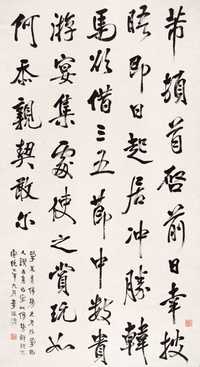 芾頓首啓前日幸披
晤即日起居沖勝韓
馬欲借三五節中數貴
游宴集處使之賞玩如
何忝親契敢爾